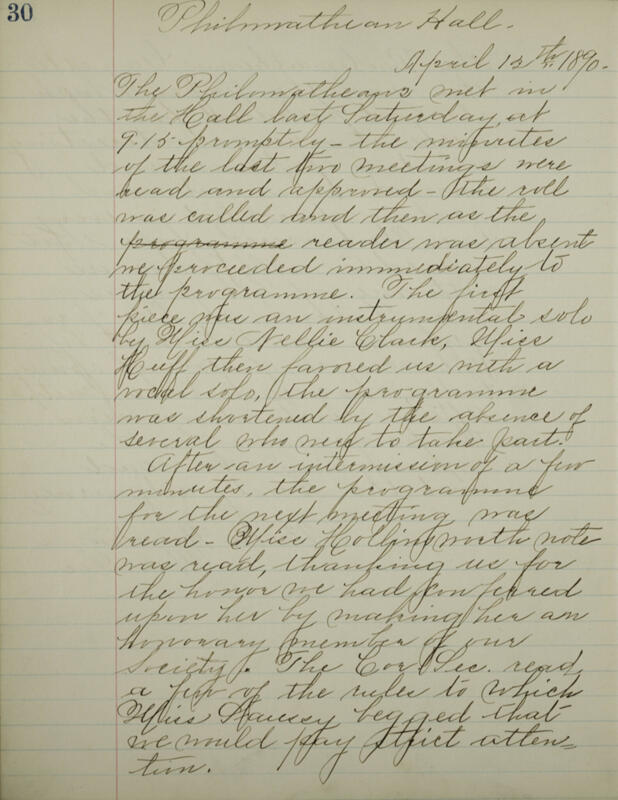 30
Philomathean Hall.
April 12th, 1890.
The Philomatheans met in
the Hall last Saturday, at
9.15 promptly - the minutes
of the last two meetings were
read and approved - The roll
was called and then as the
programme reader was absent
we proceeded immediately to
the programme. The first
piece was an instrumental solo
by Miss Nellie Clark, Miss
Huff then favored us with a
vocal solo, the programme
was shortened by the absence of
several who were to take part.
After an intermission of a few
minutes, the programme
for the next meeting was
read - Miss Hollingsworth note
was read, thanking us for
the honor we had conferred
upon her by making her an
honorary member of our
Society. The Cor. Sec. read
a few of the rules to which
Miss begged that
we would pay strict atten=
tion.